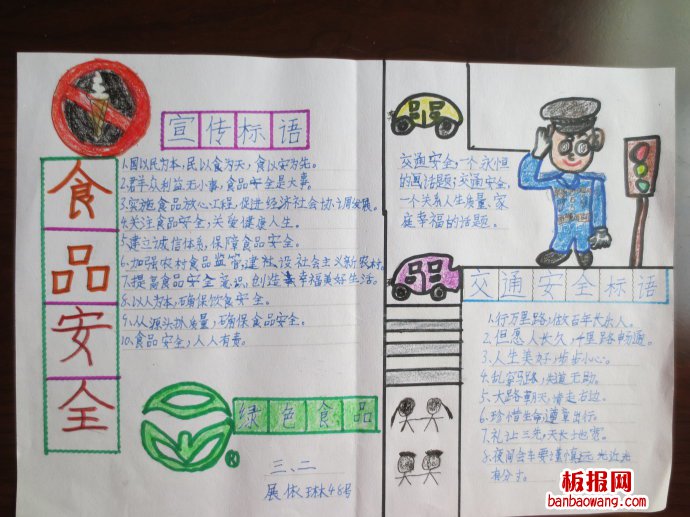 宣传标语
食品安全
1.国以民为本,民以食为天,食以安为先。
2.群众利益无小事,食品安全是大事。
3.实施食品放心工程,促进经济社会协调发展。
4.关注食品安全,关爱健康人生。
5.建立诚信体系,保障食品安全。
6.加强农村食品监管,建社设社会主义新农村。
7.提高食品安全意识,创造幸福美好生活。
8.以人为本,确保饮食安全。
9.从源头抓质量,确保食品安全。
10.食品安全,人人有责。
绿色食品
三、二
展依琳48号
交通安全,一个永恒
的话题;交通安全,
一个关系人生质量、家
庭幸福的话题。
交通安全标语
1.行万里路,做百年长乐人。
2.但愿人长久,千里路畅通。
3.人生美好,步步小心。
4.乱穿马路,失道无助。
5.大路朝天,请走右边。
6.珍惜生命,遵章出行。
7.礼让三先,天长地也宽。
8.夜间会车要谨慎,远光近光
有分寸。
板报网
banbaowang.com